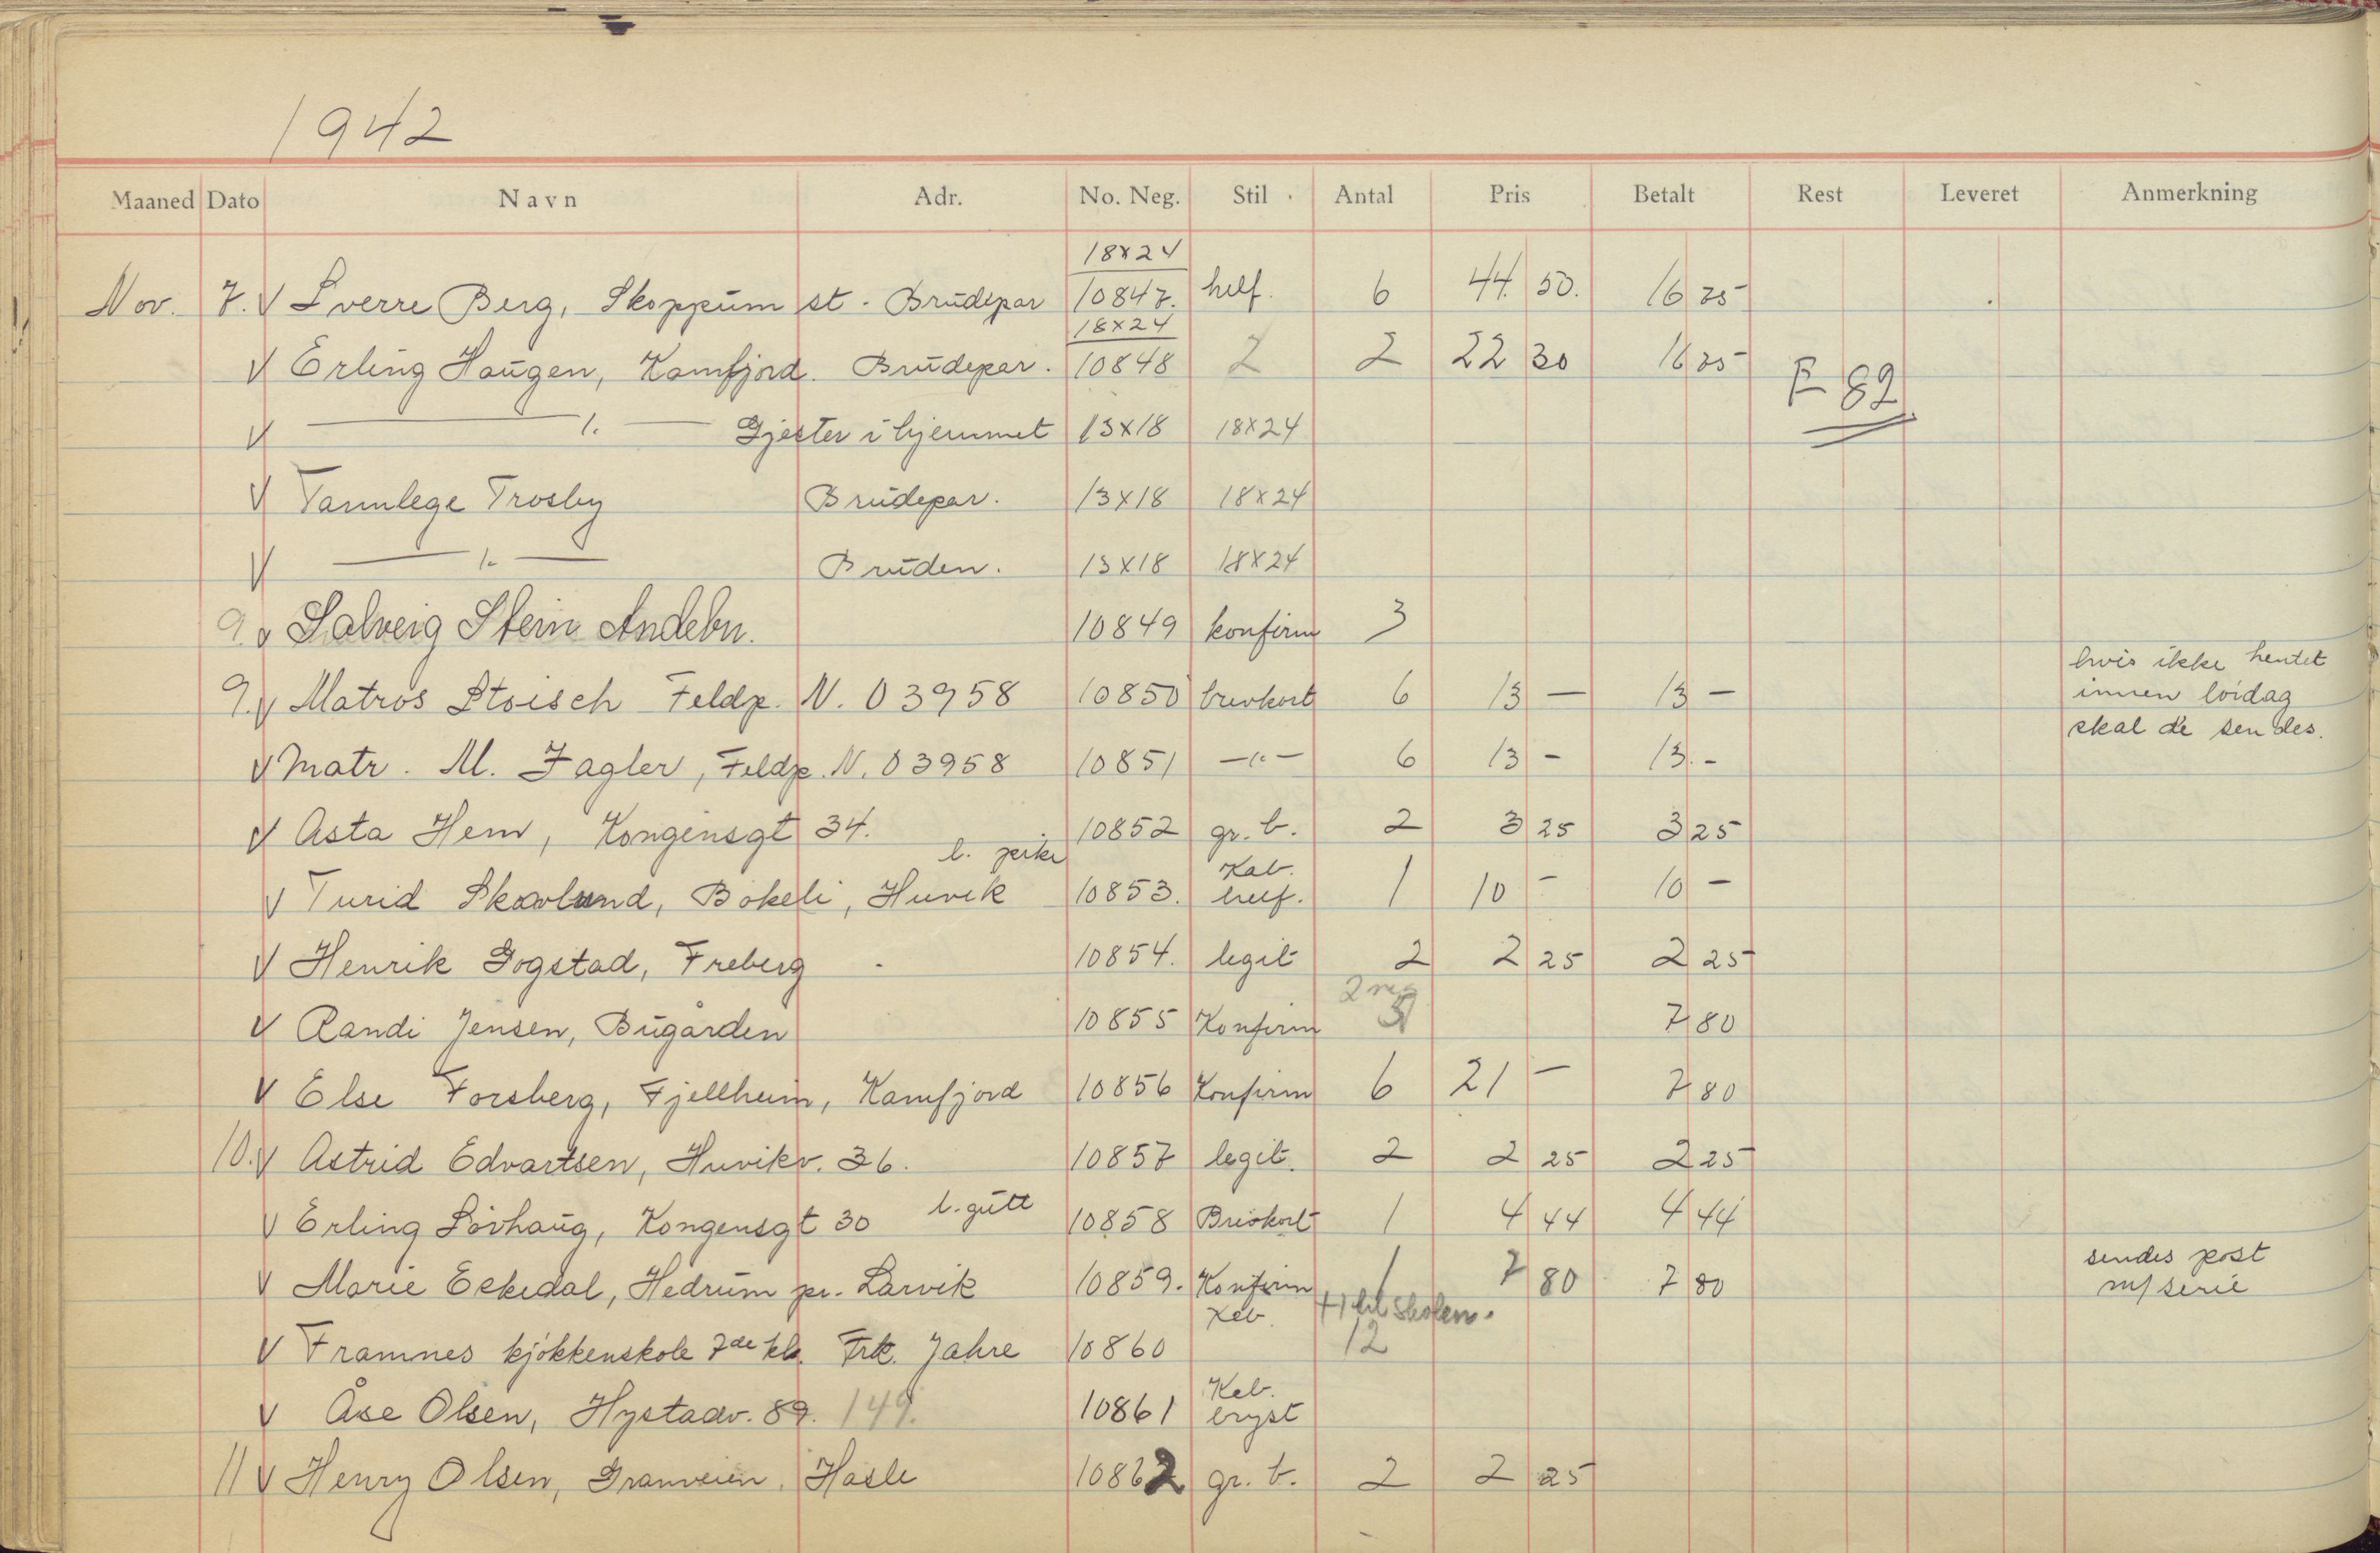 1942
Maaned Dato Navn Adr. No. Neg. Stil Antal Pris Betalt Rest Leveret Anmerkning
18x24
Nov. 7. V Sverre Berg, Skoppum st. Brudepar 10847. helf. 6 44. 50. 16 25
18x24
V Erling Haugen, Kamfjord. Brudepar. 10848 2 2 22 30 16 25
F 82
V — " — Gjester i hjemmet 13x18 18x24
V Tannlege Trosby Brudepar. 13x18 18x24
V — " — Bruden. 13x18 18x24
9. v Solveig Stein Andebu. 10849 konfirm 3
9. V Matros Stoisch Feldp. N. 03958 10850 brevkort 6 13 — 13 —
hvis ikke hentet
innen lördag
skal de sendes.
V Matr. M. Jagler, Feldp. N. 03958 10851 — " — 6 13 - 13. -
V Asta Hem, Kongensgt 34. 10852 gr. b. 2 3 25 3 25
l. pike Kab.
V Turid Skovlund, Bökeli, Huvik 10853. helf. 1 10 - 10 -
V Henrik Gogstad, Freberg 10854. legit 2 2 25 2 25
2 neg
V Randi Jensen, Bugården 10855 Konfirm 3 7 80
V Else Forsberg, Fjellheim, Kamfjord 10856 Konfirm 6 21 — 7 80
10. V Astrid Edvartsen, Huvikv. 36. 10857 legit. 2 2 25 2 25
V Erling Lövhaug, Kongensgt 30 l. gutt 10858 Brevkort 1 4 44 4 44
V Marie Eckedal, Hedrum pr. Larvik 10859. Konfirm 1 7 80 7 80
sendes post
m/ serie
Keb. +1 til skolen.
V Framnes kjökkenskole 7de kl. Frk. Jahre 10860 12
Keb.
V Åse Olsen, Hystadv. 89. 149. 10861 bryst
11 V Henry Olsen, Granveien, Hasle 10862 gr. b. 2 2 25